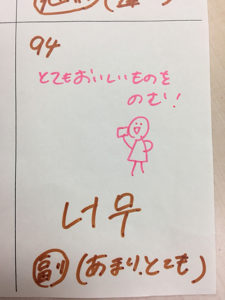 94
とてもおいしいものを
のむ!
너무
副(あまり、とても)